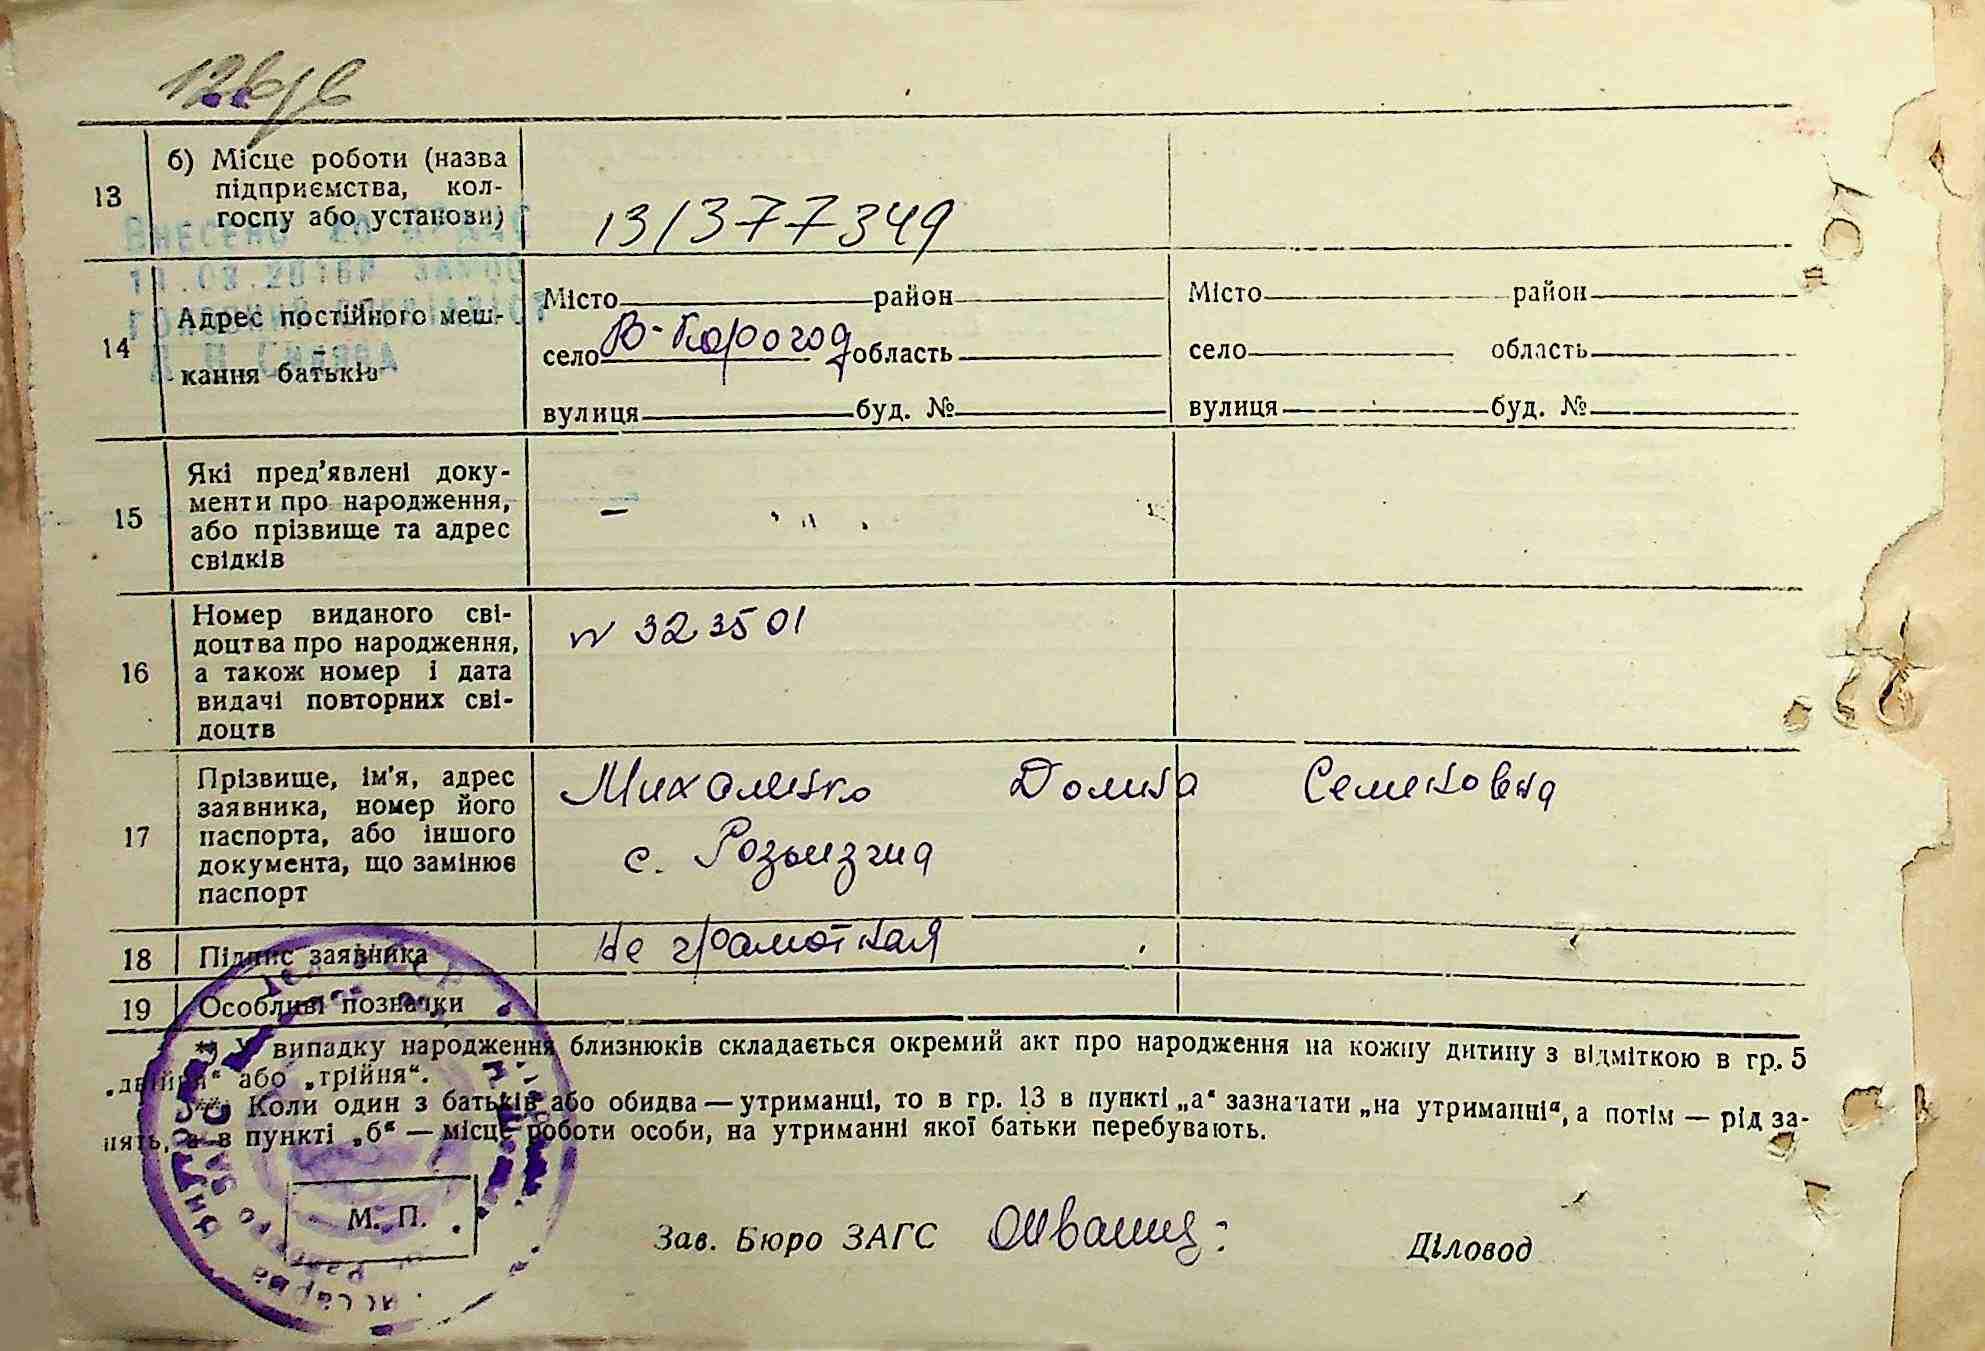 13
б) Місце роботи (назва
підприємства, кол-
госпу або установи)
13/377349
14
Адрес постійного меш-
кання батьків
Місто район
село В-Карогод область
вулиця буд. №
Місто район
село область
вулиця буд. №
15
Які пред’явлені доку-
менти про народження,
або прізвище та адрес
свідків
–
16
Номер виданого сві-
доцтва про народження,
а також номер і дата
видачі повторних сві-
доцтв
N 323501
17
Прізвище, ім’я, адрес
заявника, номер його
паспорта, або іншого
документа, що замінює
паспорт
Михаленко Домна Семеновна
с.
18
Підпис заявника
не грамотная
19
Особливі позначки
*) У випадку народження близнюків складається окремий акт про народження на кожну дитину з відміткою в гр. 5
„двійня“ або „трійня“.
Коли один з батьків або обидва — утриманці, то в гр. 13 в пункті „а“ зазначати „на утриманні“, а потім — рід за-
нять, а в пункті „б“ — місце роботи особи, на утриманні якої батьки перебувають.
М. П.
Зав. Бюро ЗАГС
Діловод